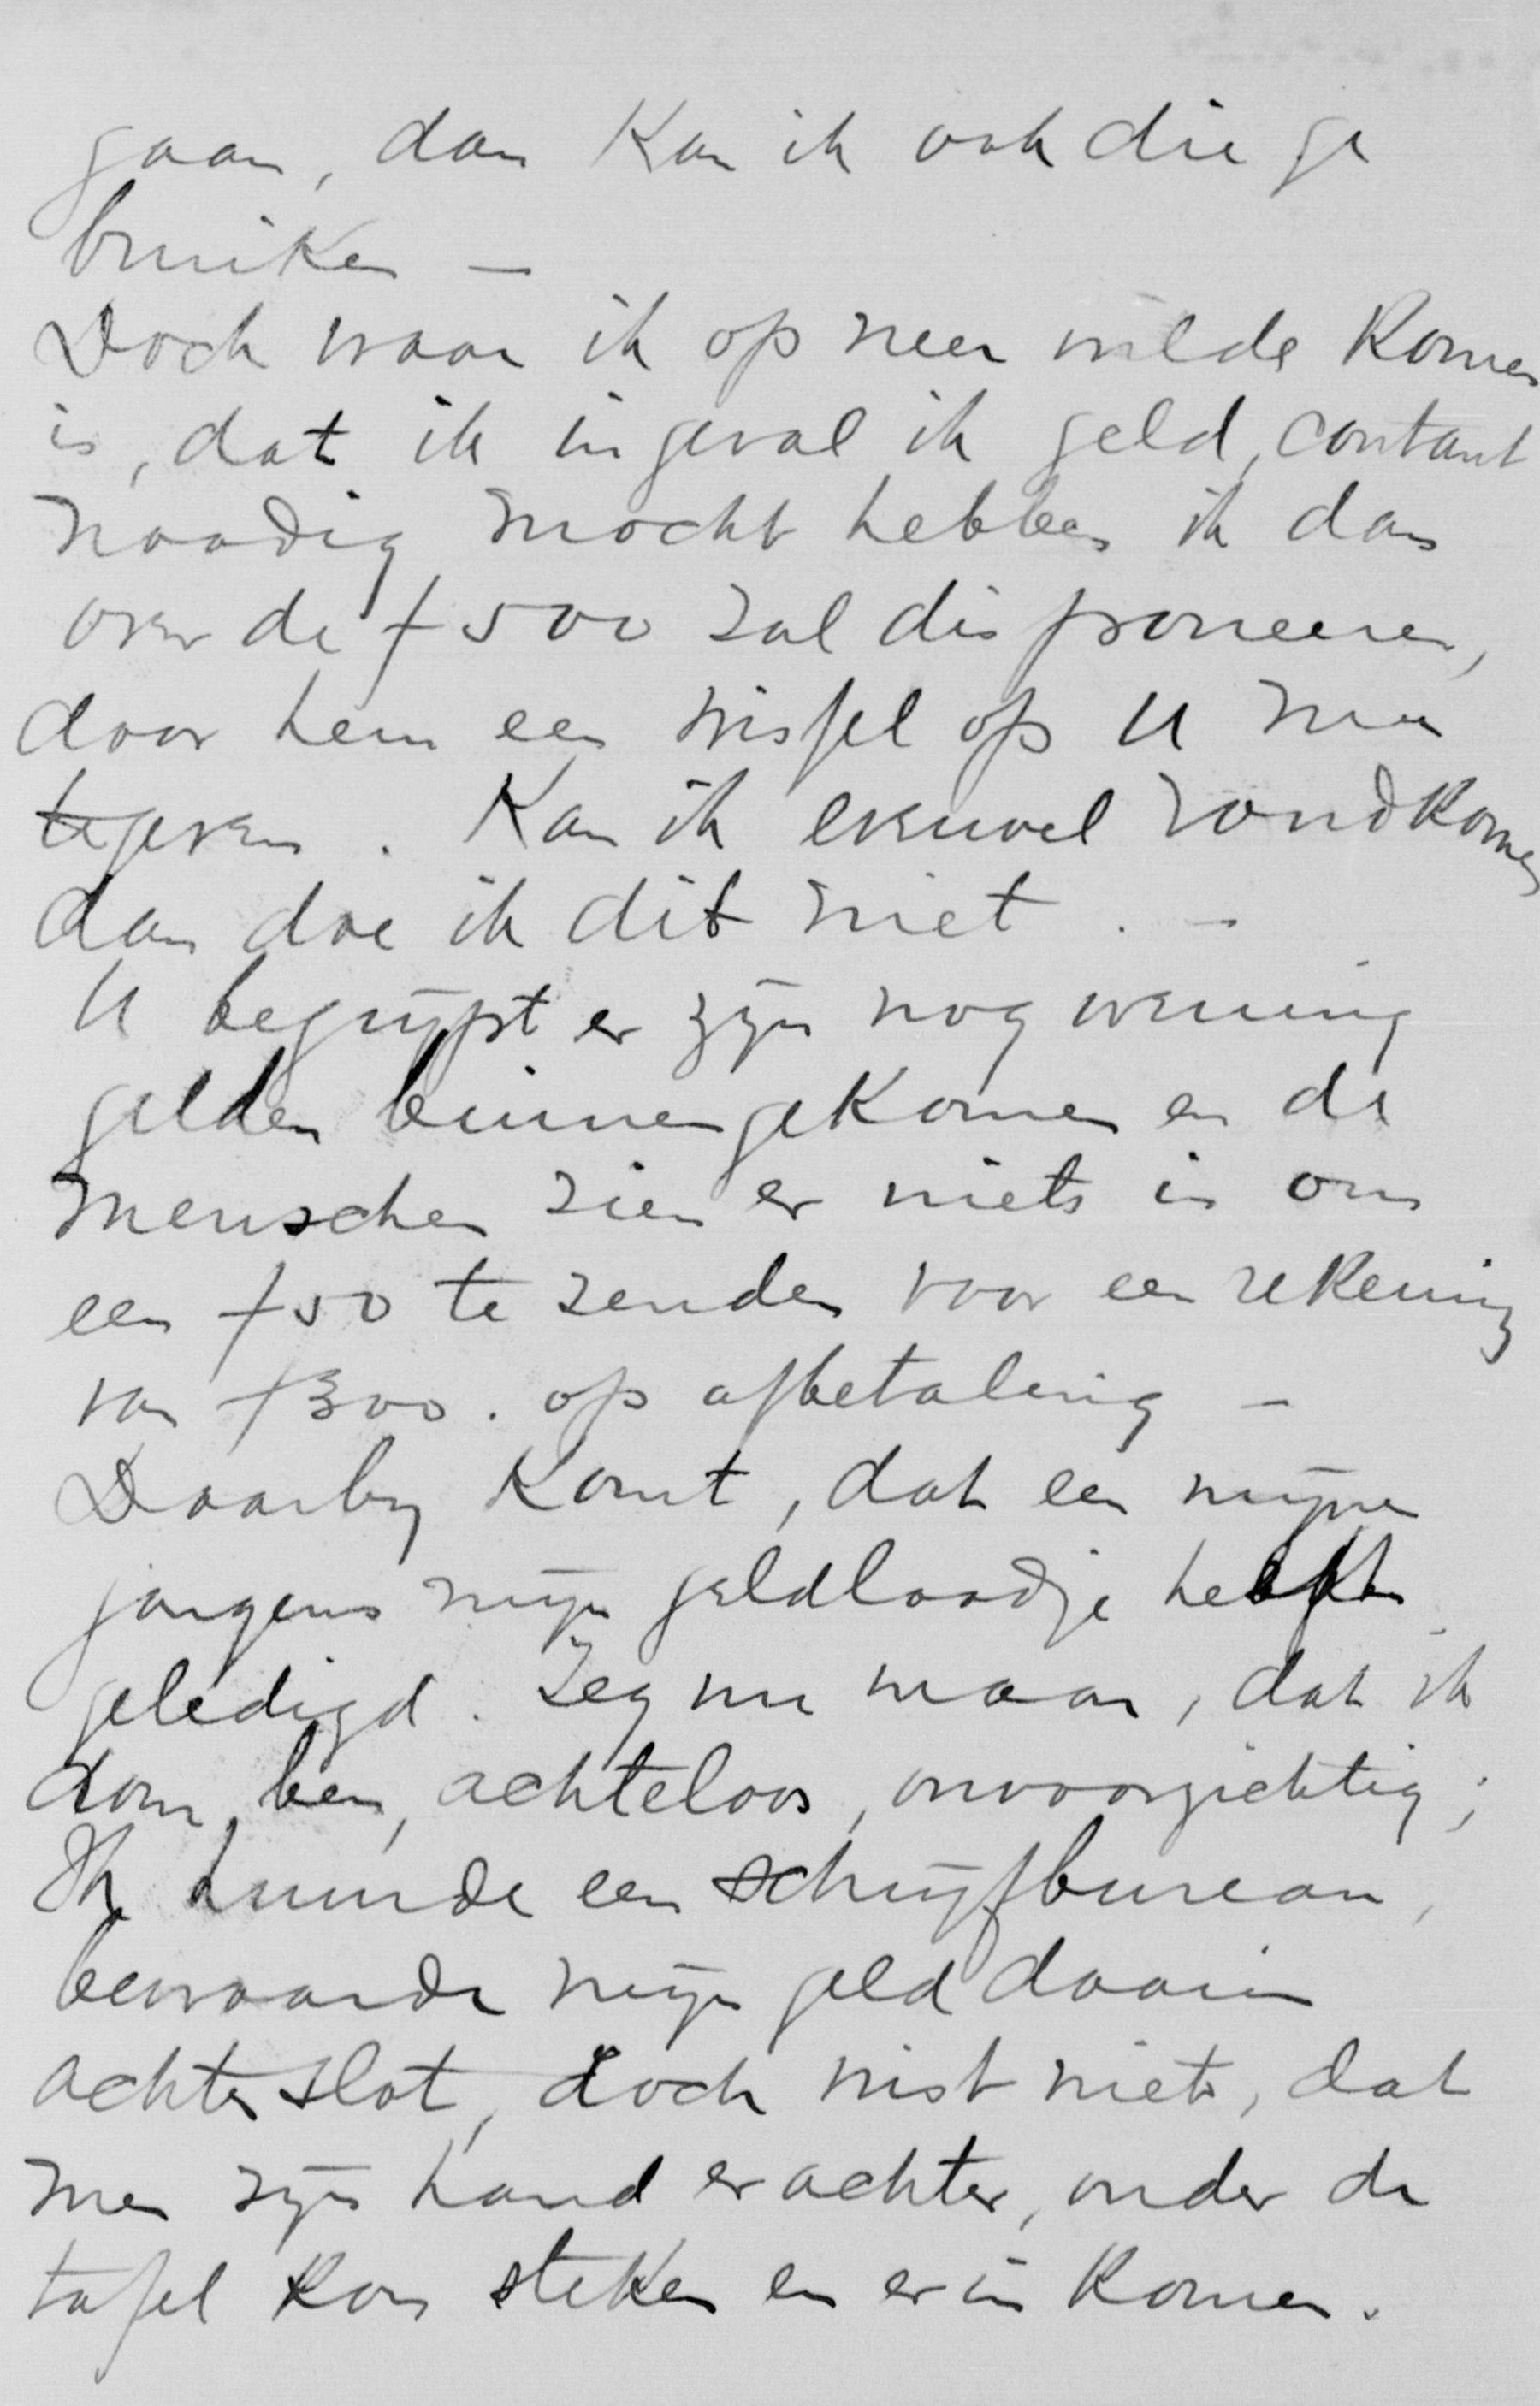 gaan, dan kan ik ook die ge
bruiken —
Doch waar ik op neer wilde komen
is, dat ik in geval ik geld, contant
noodig mocht hebben ik dan
over de f 500 zal disponeeren,
door hem een wissel op U mee
te geven. Kan ik evenwel rondkomen
dan doe ik dit niet. —
U begrijpt er zijn nog weinig
gelden binnengekomen en de
menschen zien er niets in om
een f 50 te zenden voor een rekening
van f 300. op afbetaling —
Daarbij komt, dat een mijner
jongens mijn geldlaadje heeft
geledigd. Zeg nu maar, dat ik
dom ben, achteloos, onvoorzichtig;
Ik huurde een schrijfbureau,
bewaarde mijn geld daarin
achter slot, doch wist niet, dat
men zijn hand er achter, onder de
tafel kon steken en er in komen.